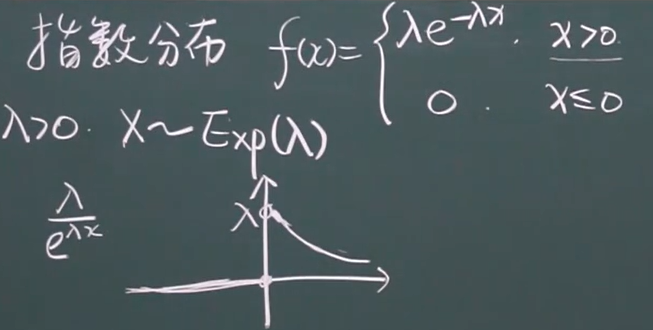 指数分布 f(x)= { λe^{-λx}. x>0.
0. x≤0
λ>0. X~Exp(λ)
λ/e^{λx}
λ